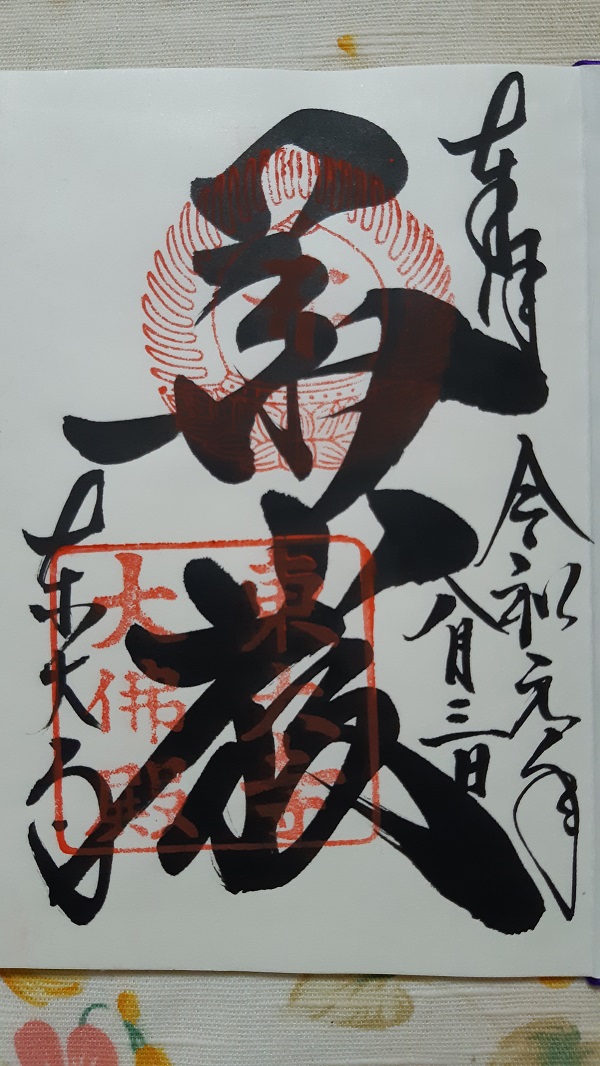 奉拝
令和元年
八月三日
華厳
東大寺
東大寺
大佛殿